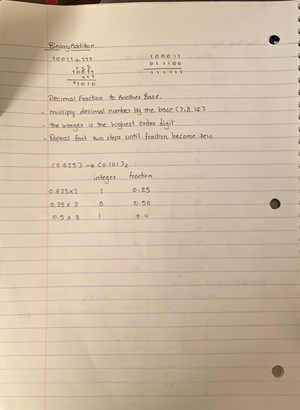 Binary Addition
10011+111
111
10011
111
11010
100011
011100
111111
Decimal Fraction to Another Base.
- multiply decimal number by the base (2,8,16)
- the integer is the highest order digit
- Repeat first two steps until fraction become zero
(0.625) → (0.101)2
integer fraction
0.625x2 1 0.25
0.25 x 2 0 0.50
0.5 x 2 1 0.0